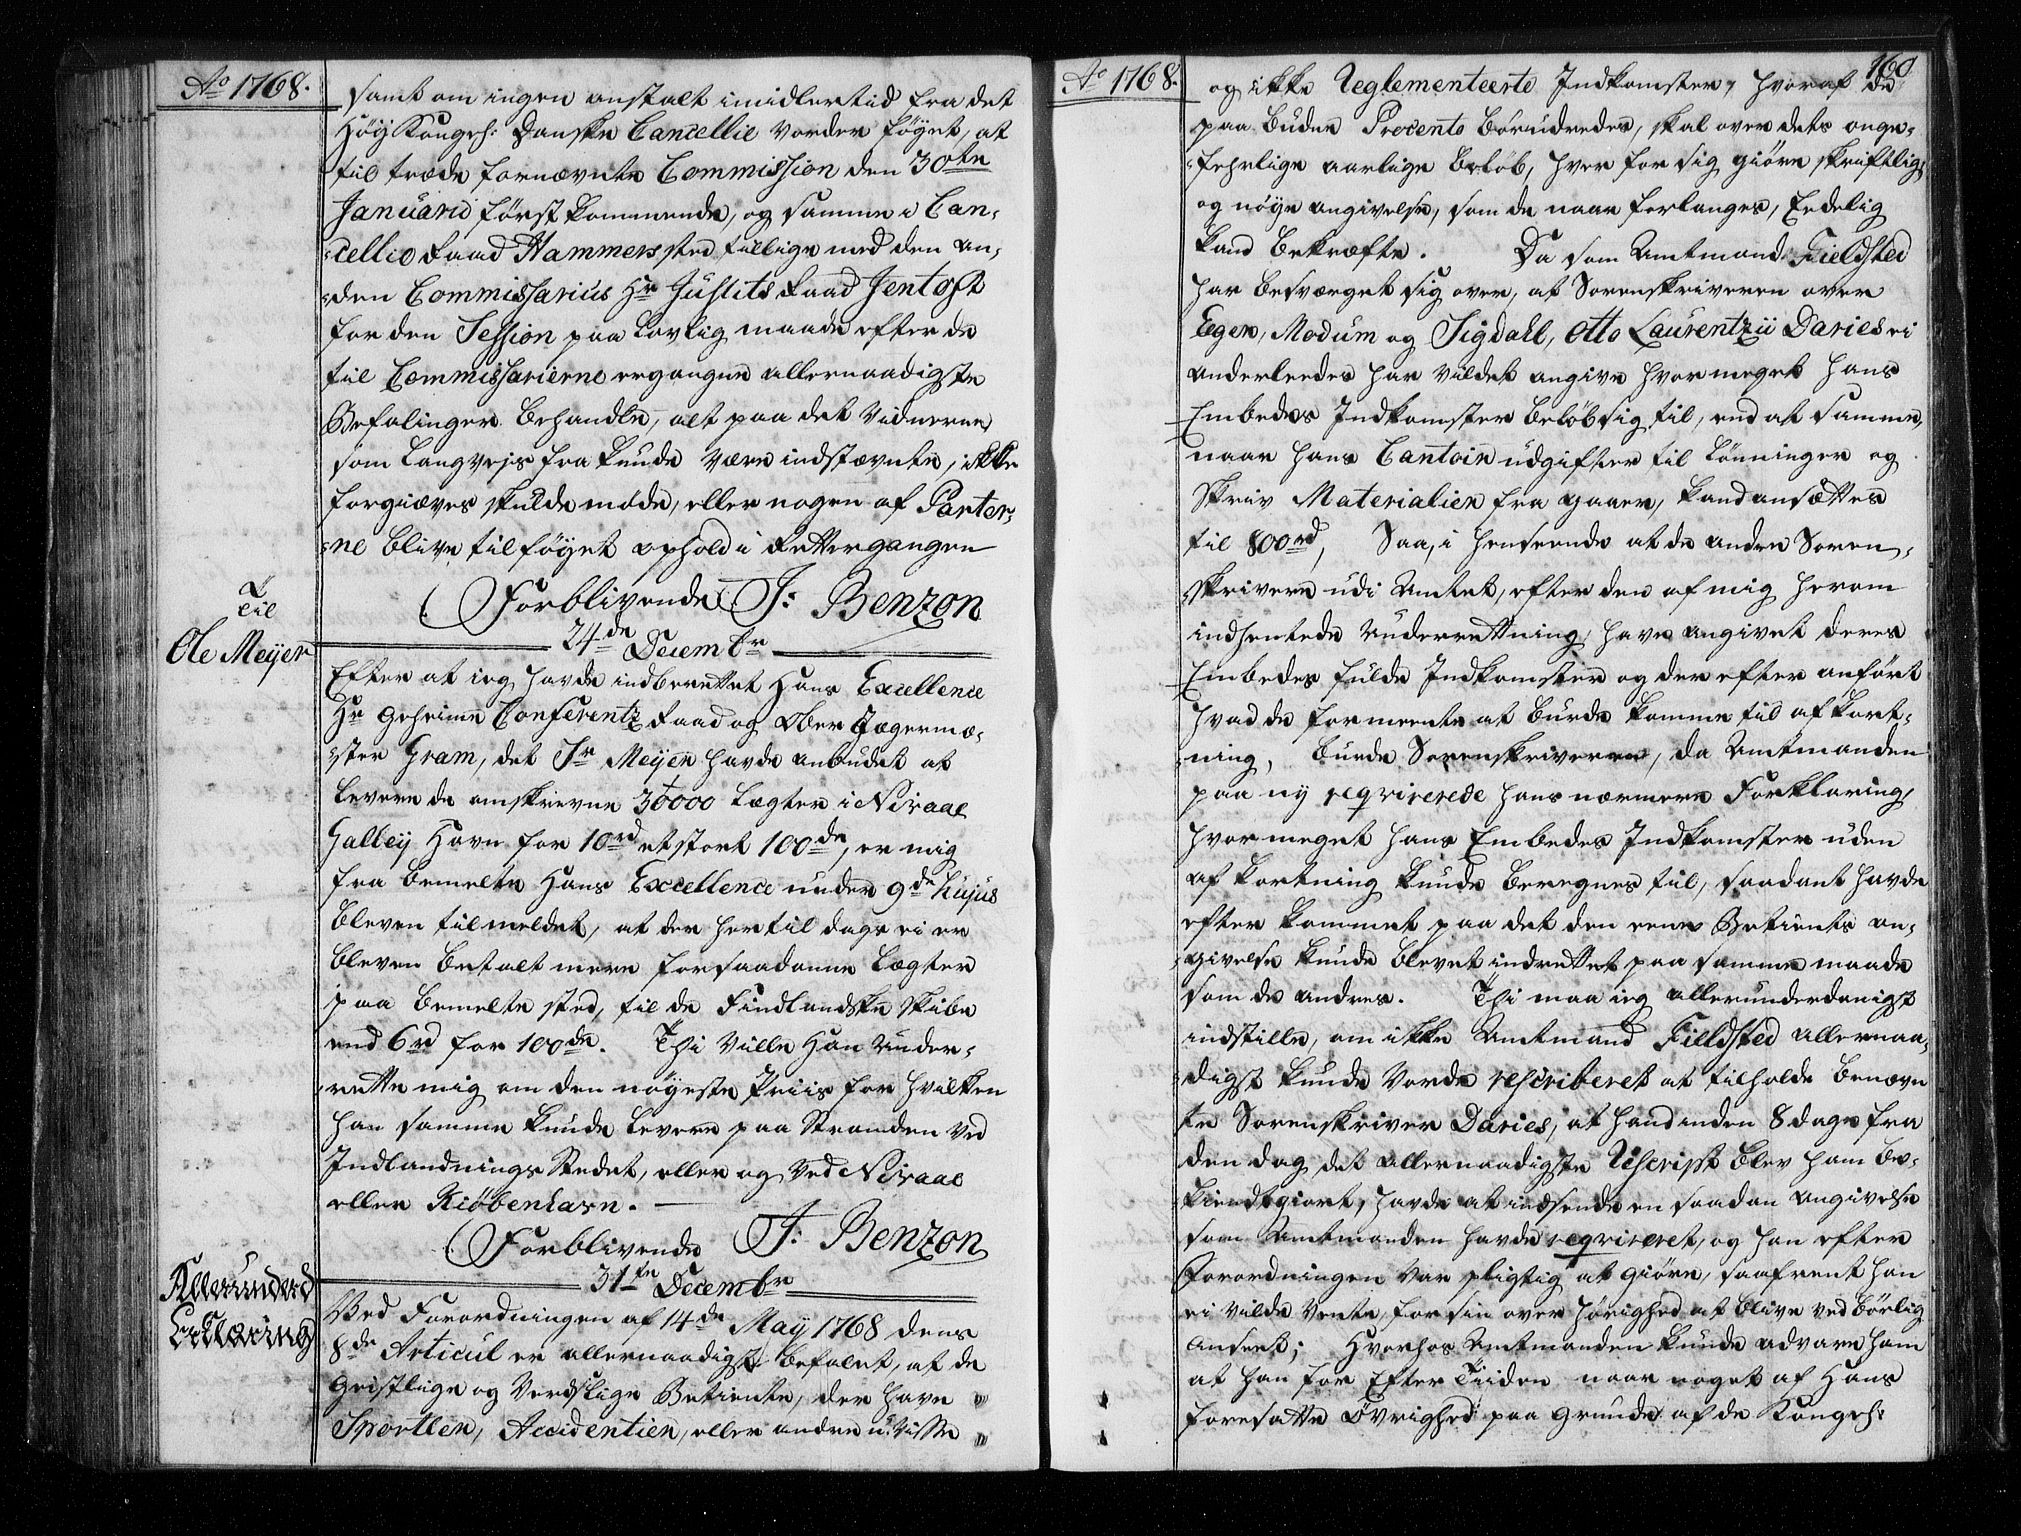 Ao 1768.
samt om ingen anstalt imidlertid fra det
Høy Kongel: Danske Cancellie vorder føyet, at
til træde fornævnte Commission den 30te
Januarii først kommende, og samme i Can-
-cellie Raad Hammers sted tillige med den an-
-den Commissarius Hr Justits Raad Jentoft
for den Session paa lovlig maade efter de
til Commissarierne ergangne allernaadigste
Befalinger behandle, alt paa det vidnerne
som langvejs fra kunde være indstævnte, ikke
forgiæves skulde møde, eller nogen af Parter-
-ne blive tilføyet ophold i Rettergangen
Forblivende J: Benzon
til
Ole Meyer
24de Decembr
Efter at ieg havde indberettet Hans Excellence
Hr Geheime Conferentz Raad og Ober Jægermæ-
-ster Gram, det Sr Meyer havde anbudet at
levere de omskrevne 30000 Lægter i Nivaae
Galley Havn for 10rd et stort 100de, er mig
fra bemelte Hans Excellence under 9de hujus
bleven tilmeldet, at der hertil dags ei er
bleven betalt mere for saadanne Lægter
paa bemelte sted, til de Findlandske skibe
end 6rd for 100de. Thi ville Han under-
-rette mig om den nøyeste Priis for hvilken
han samme kunde levere paa Stranden ved
Indlandnings Stedet, eller og ved Nivaae
eller Kiøbenhavn.
Forblivende J: Benzon
Allerunderd
Erklæring
31te Decembr
Ved Forordningen af 14de May 1768 dens
8de Articul er allernaadigst befalet, at de
Geistlige og Verdslige Betiente, der have
Sportler, Accidentien, eller andre u-visse
160
Ao 1768.
og ikke Reglementeerte Indkomster, hvoraf de
paa budne Procento bør udredes, skal over dets onge-
-fehrlige aarlige beløb, hver for sig giøre skriftlig
og nøye angivelse, som de naar forlanges, Eedelig
kand bekræfte. Da som Amtmand Fieldsted
har besværget sig over, at Sorenskriveren over
Eger, Modum og Sigdall, Otto Laurentzii Daries ei
anderleedes har vildet angive hvor meget hans
Embedes Indkomster beløb sig til, end at samme,
naar hans Cantoir udgifter til Lønninger og
Skriv Materialier fra gaaer, kand ansættes
til 800rd, Saa, i henseende at de andre Soren-
-skrivere udi Amtet, efter den af mig herom
indhentede Underrettning, have angivet deres
Embedes fulde Indkomster og der efter anført
hvad de formeente at burde komme til afkort-
-ning, burde Sorenskriveren, da Amtmanden
paa ny reqvirerede hans nærmere Forklaring,
hvor meget hans Embedes Indkomster uden
afkortning kunde beregnes til, saadant havde
efter kommet paa det den eene Betients an-
-givelse kunde blevet indrettet paa samme maade
som de andres. Thi maa ieg allerunderdanigst
indstille, om ikke Amtmand Fieldsted allernaa-
-digst kunde vorde rescriberet at tilholde benævn
te Sorenskriver Daries, at hand inden 8 dage fra
den dag det allernaadigste Rescript blev ham be-
kiendtgiort, havde at indsende en saadan angivelse
som Amtmanden havde reqvireret, og han efter
Forordningen var pligtig at giøre, saafremt han
ei vilde vente, for sin over hørighed at blive ved børlig
anseet; Hvorhos Amtmanden kunde advare ham
at han for Efter Tiiden naar noget af Hans
foresatte Øvrighed paa grund af de Kongel: